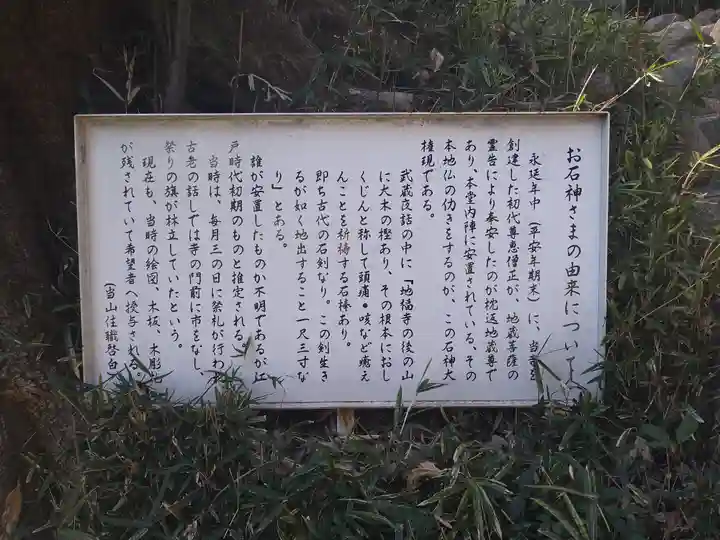 お石神さまの由来について
永延年中(平安年期末)に、当寺を
創建した初代尊恵僧正が、地蔵菩薩の
霊告により奉安したのが枕返地蔵尊で
あり、本堂内陣に安置されている、その
本地仏の仂きをするのが、この石神大
権現である。
武蔵夜話の中に「地福寺の後の山
に大木の樫あり、その根本におし
くじんと称して頭痛・咳など癒え
んことを祈祷する石棒あり。
即ち古代の石剣なり。この剣生き
るが如く地出すること一尺三寸な
り」とある。
誰が安置したものか不明であるが江
戸時代初期のものと推定される。
当時は、毎月三の日に祭礼が行わ
古老の話しでは寺の門前に市をなし、
祭りの旗が林立していたという。
現在も、当時の絵図、木板、木彫
が残されていて希望者へ授与される。
(当山住職啓白